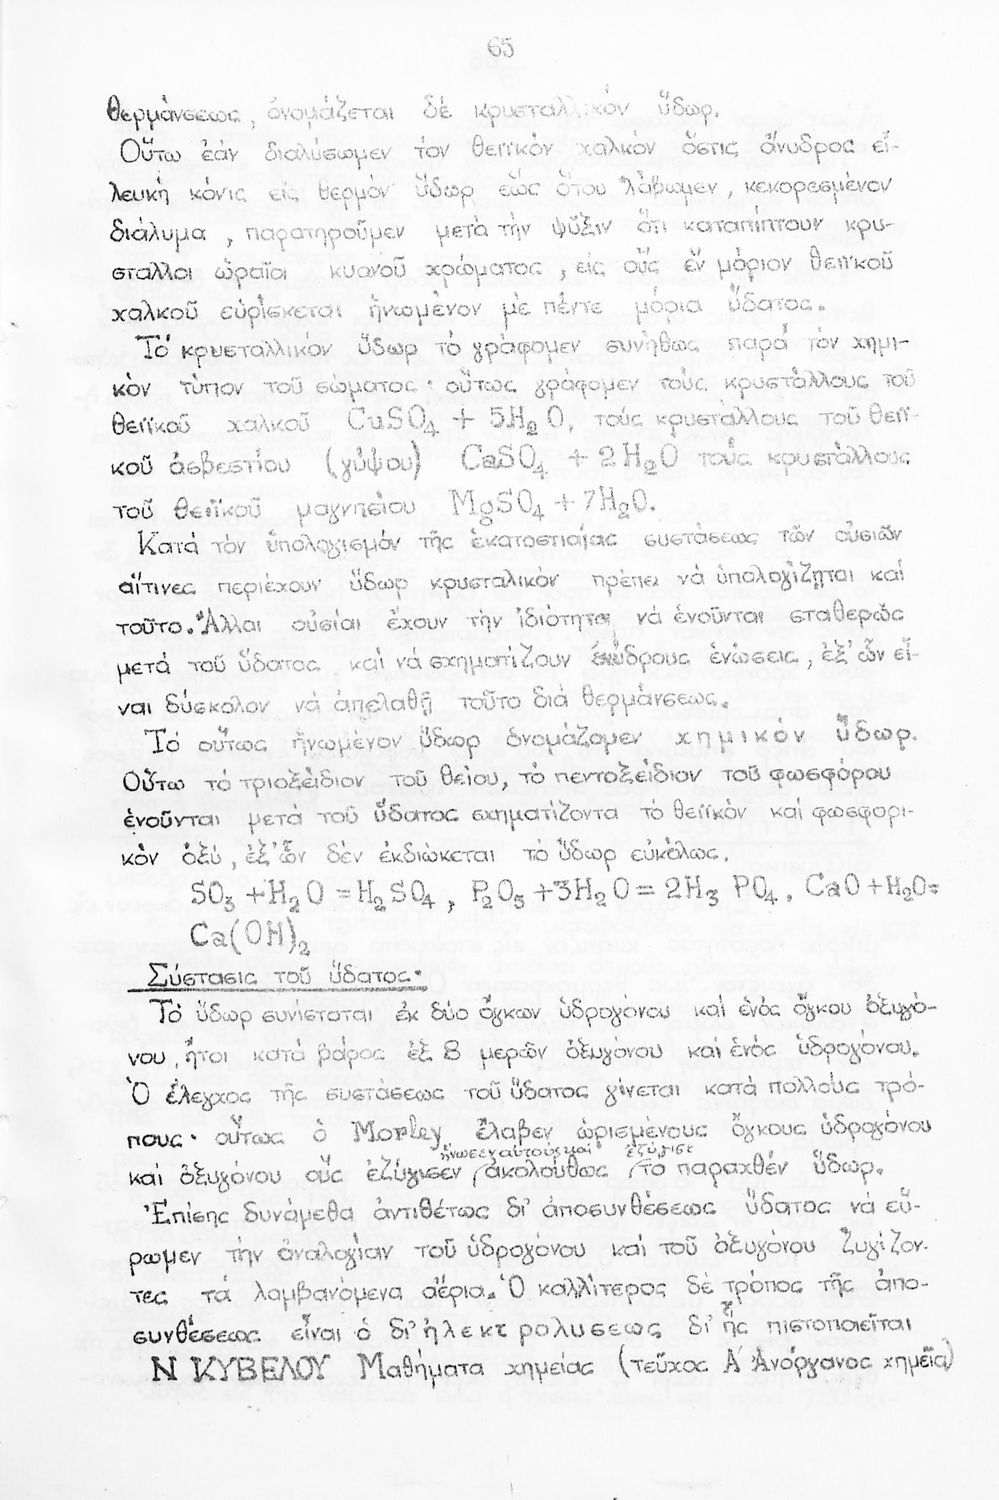 65
θερμάνσεως, ὀνομάζεται δέ κρυσταλλικόν ὕδωρ.
Οὕτω ἐάν διαλύσωμεν τόν θειϊκόν χαλκόν ὅστις ἄνυδρος εἶ-
λευκή κόνις εἰς θερμόν ὕδωρ ἕως ὅτου λάβωμεν, κεκορεσμένον
διάλυμα, παρατηροῦμεν μετά τήν ψῦξιν ὅτι καταπίπτουν κρυ-
σταλλοι ὡραῖοι κυανοῦ χρώματος, εἰς οὕς ἕν μόριον θειϊκοῦ
χαλκοῦ εὑρίσκεται ἡνωμένον μέ πέντε μόρια ὕδατος.
Τό κρυσταλλικόν ὕδωρ τό γράφομεν συνήθως παρά τόν χημι-
κόν τύπον τοῦ σώματος· οὕτως γράφομεν τούς κρυστάλλους τοῦ
θειϊκοῦ χαλκοῦ CuSO₄ + 5H₂O, τούς κρυστάλλους τοῦ θειϊ-
κοῦ ἀσβεστίου (γύψου) CaSO₄ + 2H₂O τούς κρυστάλλους
τοῦ θειϊκοῦ μαγνησίου MgSO₄ + 7H₂O.
Κατά τόν ὑπολογισμόν τῆς ἑκατοστιαίας συστάσεως τῶν οὐσιῶν
αἵτινες περιέχουν ὕδωρ κρυσταλικόν πρέπει νά ὑπολογίζηται καί
τοῦτο. Ἄλλαι οὐσίαι ἔχουν τήν ἰδιότητα νά ἑνοῦνται σταθερῶς
μετά τοῦ ὕδατος καί νά σχηματίζουν ἐνύδρους ἑνώσεις, ἐξ' ὧν εἶ-
ναι δύσκολον νά ἀπελαθῇ τοῦτο διά θερμάνσεως.
Τό οὕτως ἡνωμένον ὕδωρ ὀνομάζομεν χημικόν ὕδωρ.
Οὕτω τό τριοξείδιον τοῦ θείου, τό πεντοξείδιον τοῦ φωσφόρου
ἑνοῦνται μετά τοῦ ὕδατος σχηματίζοντα τό θειϊκόν καί φωσφορι-
κόν ὀξύ, ἐξ' ὧν δέν ἐκδιώκεται τό ὕδωρ εὐκόλως.
SO₃ + H₂O = H₂SO₄, P₂O₅ + 3H₂O = 2H₃PO₄. CaO + H₂O =
Ca(OH)₂
Σύστασις τοῦ ὕδατος·
Τό ὕδωρ συνίσταται ἐκ δύο ὄγκων ὑδρογόνου καί ἑνός ὄγκου ὀξυγό-
νου, ἤτοι κατά βάρος ἐξ 8 μερῶν ὀξυγόνου καί ἑνός ὑδρογόνου.
Ὁ ἔλεγχος τῆς συστάσεως τοῦ ὕδατος γίνεται κατά πολλούς τρό-
πους· οὕτως ὁ Morley ἔλαβεν ὡρισμένους ὄγκους ὑδρογόνου
ἥνωσεν αὐτούς καί ἐζύγισε
καί ὀξυγόνου οὕς ἐζύγισεν ἀκολούθως τό παραχθέν ὕδωρ.
Ἐπίσης δυνάμεθα ἀντιθέτως δι' ἀποσυνθέσεως ὕδατος νά εὕ-
ρωμεν τήν ἀναλογίαν τοῦ ὑδρογόνου καί τοῦ ὀξυγόνου ζυγίζον-
τες τά λαμβανόμενα ἀέρια. Ὁ καλλίτερος δέ τρόπος τῆς ἀπο-
συνθέσεως εἶναι ὁ δι' ἠλεκτρολύσεως δι' ἧς πιστοποιεῖται
Ν ΚΥΒΕΛΟΥ Μαθήματα χημείας (τεῦχος Α Ἀνόργανος χημεῖα)